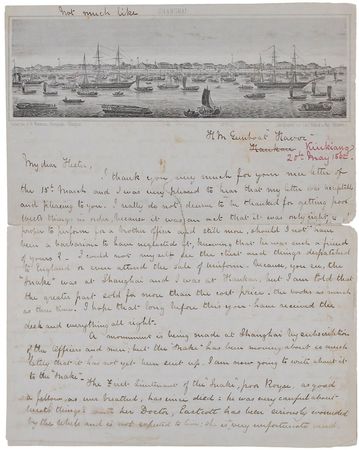 Not much like
SHANGHAI
H.M. Gunboat Havoc
Hankow Kiukiang
20th May 1862
My dear
I thank you very much for your nice letter of
the 15th March and I was very pleased to hear that my letter was helpful
and pleasing to you. I really do not deserve to be thanked for getting poor
things in order, because it was an act that it was only right &
proper to perform for a brother officer and still more, should I not have
been a barbarian to have neglected it, knowing that he was such a friend
of yours? I could not myself see the chest and things dispatched
to England or even attend the sale of uniform, because, you see, the
"Snake" was at Shanghai and I was at Hankow, but I am told that
the greater part sold for more than the cost price. The books as much
as three times. I hope that long before this you have received the
desk and everything all right.
A monument is being made at Shanghai by subscription
of the Officers and men, but the "Snake" has been moving about so much
lately that it has not yet been put up. I am now going to write about it
to the "Snake".
The First Lieutenant of the "Snake", poor as good
a fellow, as ever breathed, has since died: he was very careful about
things: and her Doctor, Eastcott has been seriously wounded
by the and is not expected to live: she is very unfortunate